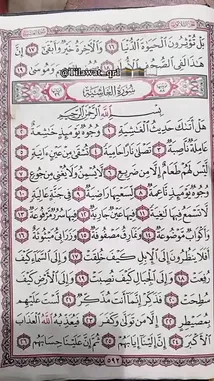 بَلْ تُؤْثِرُونَ الْحَيَوٰةَ الدُّنْيَا ١٦ وَالْآخِرَةُ خَيْرٌ وَأَبْقَىٰ ١٧ إِنَّ
هَٰذَا لَفِي الصُّحُفِ الْأُولَىٰ ١٨ صُحُفِ إِبْرَاهِيمَ وَمُوسَىٰ ١٩
@tilawat_qrl
سُورَةُ الْغَاشِيَةِ
بِسْمِ اللَّهِ الرَّحْمَٰنِ الرَّحِيمِ
هَلْ أَتَىٰكَ حَدِيثُ الْغَاشِيَةِ ١ وُجُوهٌ يَوْمَئِذٍ خَاشِعَةٌ ٢
عَامِلَةٌ نَاصِبَةٌ ٣ تَصْلَىٰ نَارًا حَامِيَةً ٤ تُسْقَىٰ مِنْ عَيْنٍ آنِيَةٍ ٥
لَيْسَ لَهُمْ طَعَامٌ إِلَّا مِنْ ضَرِيعٍ ٦ لَا يُسْمِنُ وَلَا يُغْنِي مِنْ جُوعٍ
٧ وُجُوهٌ يَوْمَئِذٍ نَاعِمَةٌ ٨ لِسَعْيِهَا رَاضِيَةٌ ٩ فِي جَنَّةٍ عَالِيَةٍ ١٠
لَا تَسْمَعُ فِيهَا لَاغِيَةً ١١ فِيهَا عَيْنٌ جَارِيَةٌ ١٢ فِيهَا سُرُرٌ مَرْفُوعَةٌ ١٣
وَأَكْوَابٌ مَوْضُوعَةٌ ١٤ وَنَمَارِقُ مَصْفُوفَةٌ ١٥ وَزَرَابِيُّ مَبْثُوثَةٌ ١٦
أَفَلَا يَنْظُرُونَ إِلَى الْإِبِلِ كَيْفَ خُلِقَتْ ١٧ وَإِلَى السَّمَاءِ كَيْفَ
رُفِعَتْ ١٨ وَإِلَى الْجِبَالِ كَيْفَ نُصِبَتْ ١٩ وَإِلَى الْأَرْضِ كَيْفَ
سُطِحَتْ ٢٠ فَذَكِّرْ إِنَّمَا أَنْتَ مُذَكِّرٌ ٢١ لَسْتَ عَلَيْهِمْ
بِمُصَيْطِرٍ ٢٢ إِلَّا مَنْ تَوَلَّىٰ وَكَفَرَ ٢٣ فَيُعَذِّبُهُ اللَّهُ الْعَذَابَ
الْأَكْبَرَ ٢٤ إِنَّ إِلَيْنَا إِيَابَهُمْ ٢٥ ثُمَّ إِنَّ عَلَيْنَا حِسَابَهُمْ ٢٦
٥٩٢